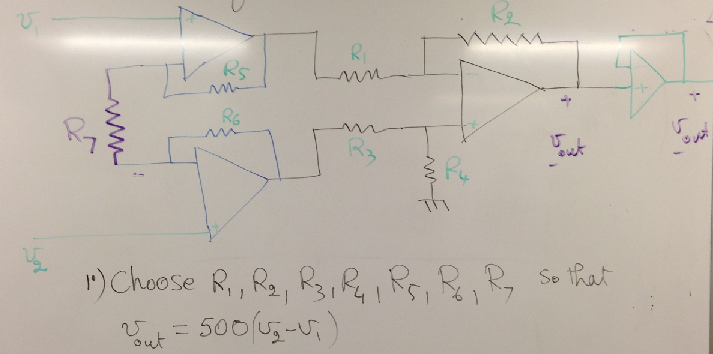 v1
+
R2
R1
R5
-
-
+
R7
R6
+
+
vout
-
vout
-
R3
R4
-
+
v2
1°) Choose R1, R2, R3, R4, R5, R6, R7 so that
vout = 500(v2-v1)